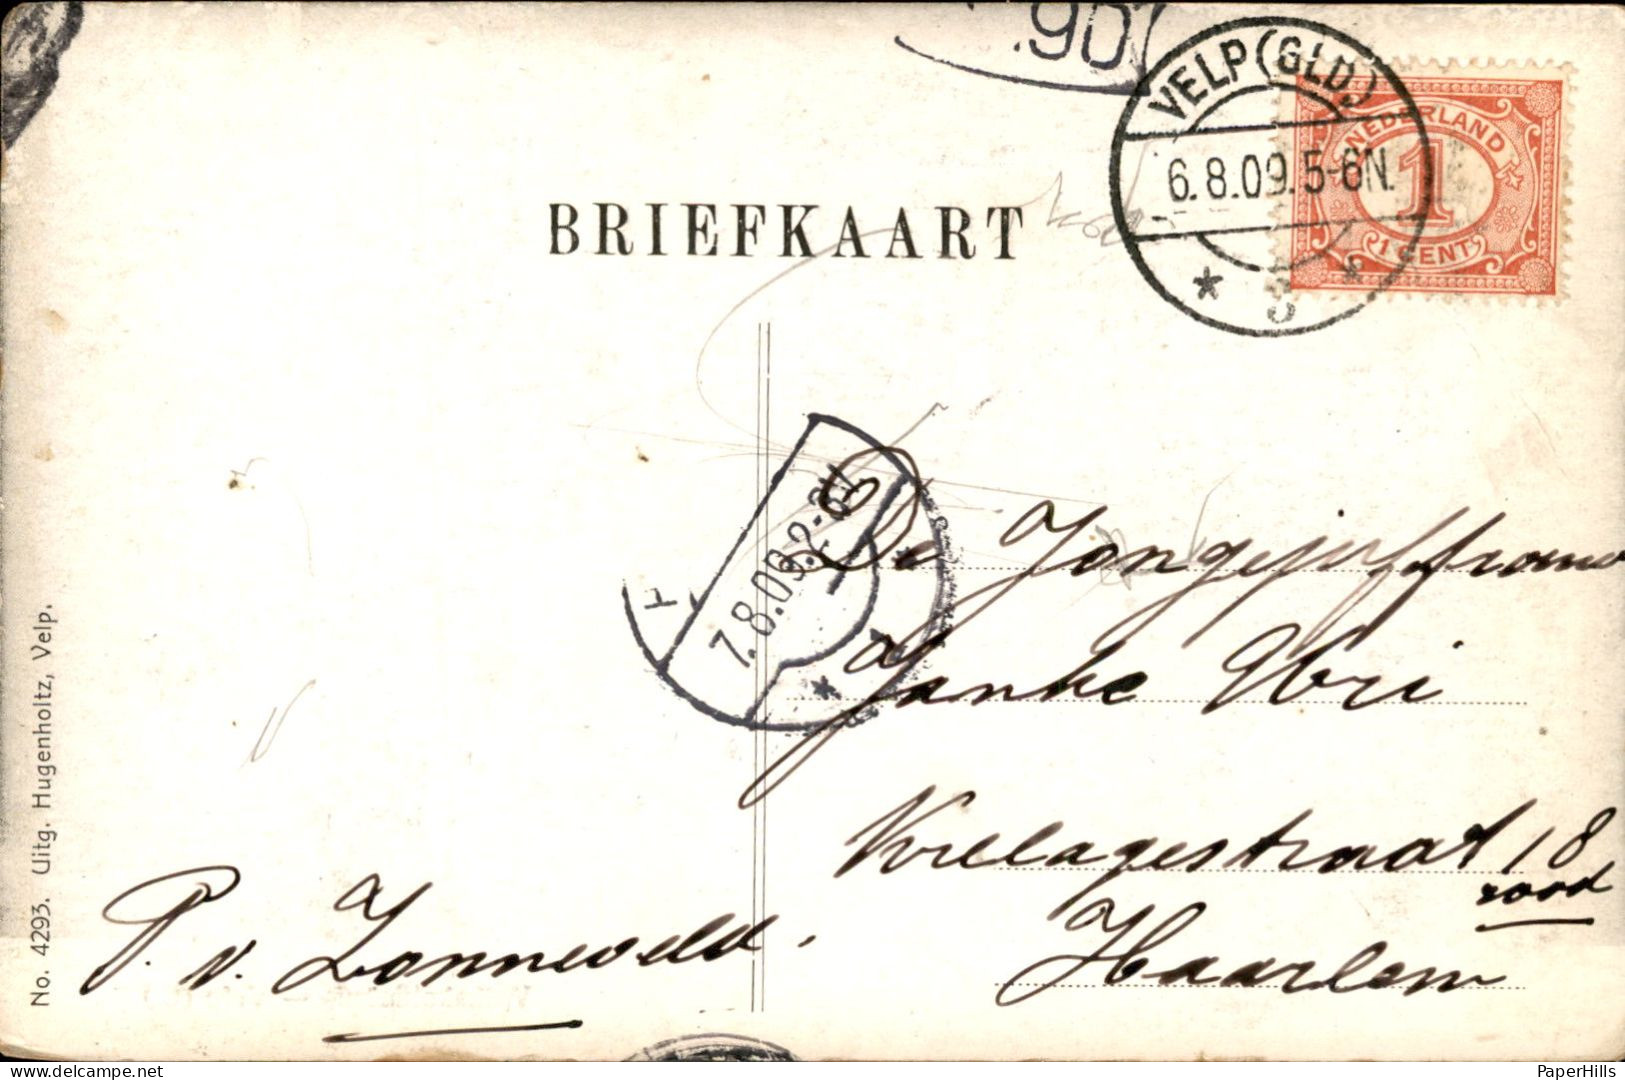 .90
VELP (GLD.)
6.8.09.5-6N.
NEDERLAND
1
1 CENT
BRIEFKAART
7.8.09.2-3V
De Jongejuffrouw
Janke Vri
Kreelagestraat 18
rood
Haarlem
P. v. Zonneveld.
No. 4293. Uitg. Hugenholtz, Velp.
delcampe.net
PaperHills